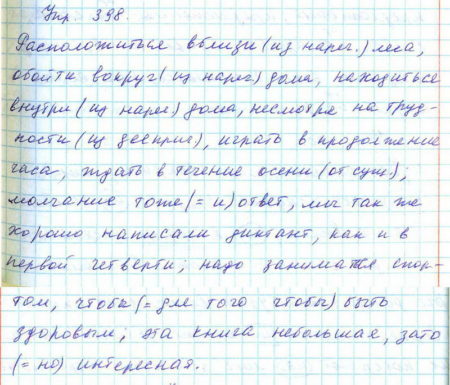 Упр. 398.
Расположиться вблизи (из нареч.) леса,
обойти вокруг (из нареч) дома, находиться
внутри (из нареч) дома, несмотря на труд-
ности (из дееприч), играть в продолжение
часа, ждать в течение осени (от сущ);
молчание тоже (= и) ответ, мы так же
хорошо написали диктант, как и в
первой четверти; надо заниматься спор-
том, чтобы (= для того чтобы) быть
здоровым; эта книга небольшая, зато
(= но) интересная.